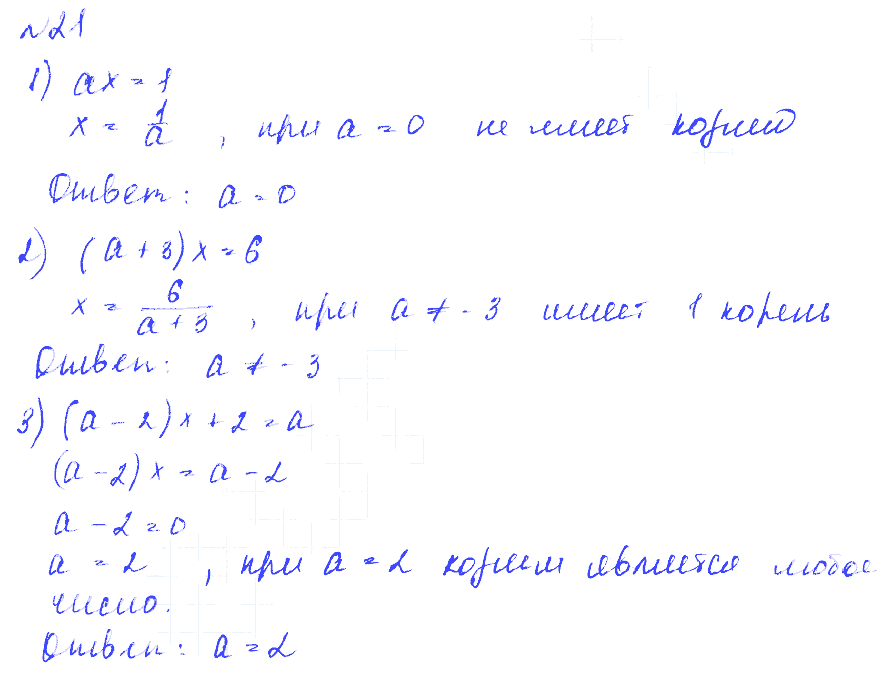 №21
1) ax = 1
x = 1/a , при a = 0 не имеет корней
Ответ: a = 0
2) (a + 3)x = 6
x = 6/(a + 3) , при a ≠ - 3 имеет 1 корень
Ответ: a ≠ - 3
3) (a - 2)x + 2 = a
(a - 2)x = a - 2
a - 2 = 0
a = 2 , при a = 2 корнем является любое
число.
Ответ: a = 2